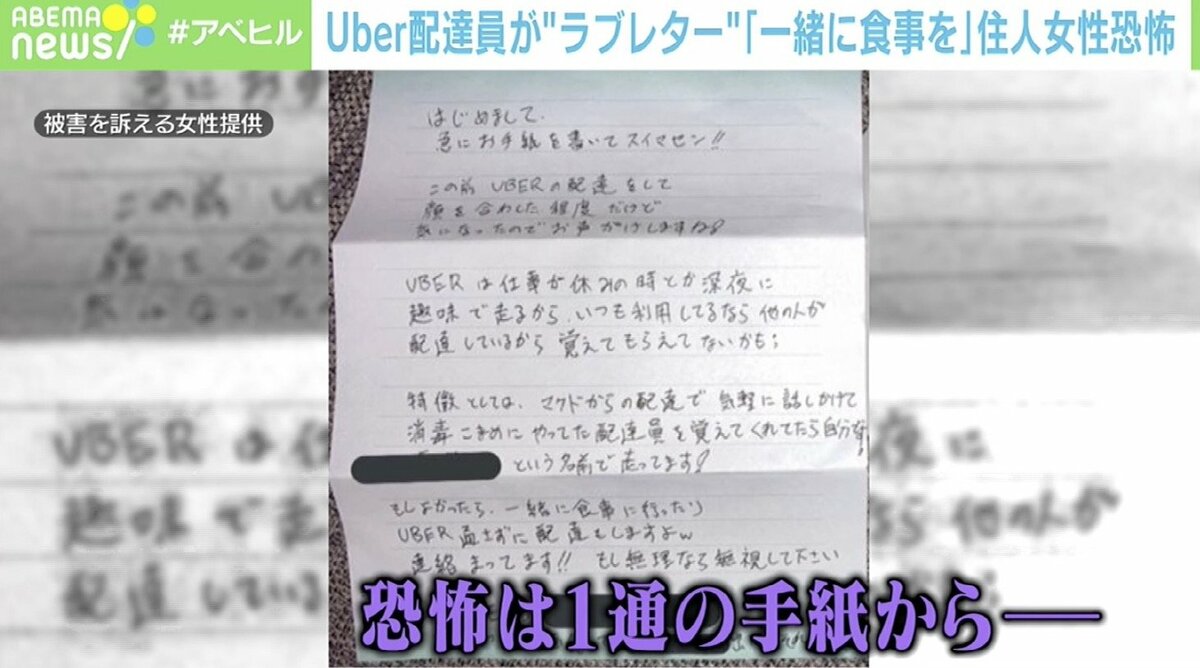 ABEMA
news
#アベヒル
Uber配達員が"ラブレター"「一緒に食事を」住人女性恐怖
被害を訴える女性提供
はじめまして、
急にお手紙を書いてスイマセン!!
この前 UBERの配達をして
顔を合わした程度だけど
気になったのでお声がけしますね!
UBERは仕事が休みの時とか深夜に
趣味で走るから、いつも利用してるなら他の人が
配達しているから覚えてもらえてないかも;
特徴としては、マクドからの配達で気軽に話しかけて
消毒こまめにやってた配達員を覚えてくれてたら自分な
という名前で走ってます!
もしよかったら、一緒に食事に行ったり
UBER通さずに配達もしますよw
連絡まってます!! もし無理なら無視して下さい
恐怖は1通の手紙から──
この前 UB
顔を合わ
UBERは仕
夜に
趣味で走
なら他の人が
配達している